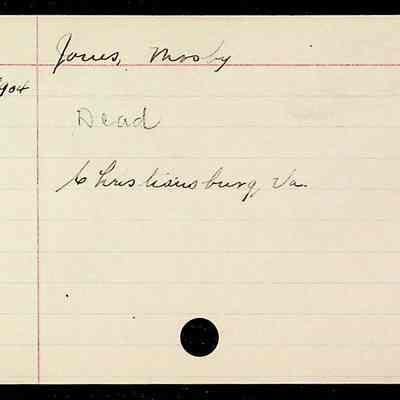 Jones, Mosby
Dead
Christiansburg, Va.